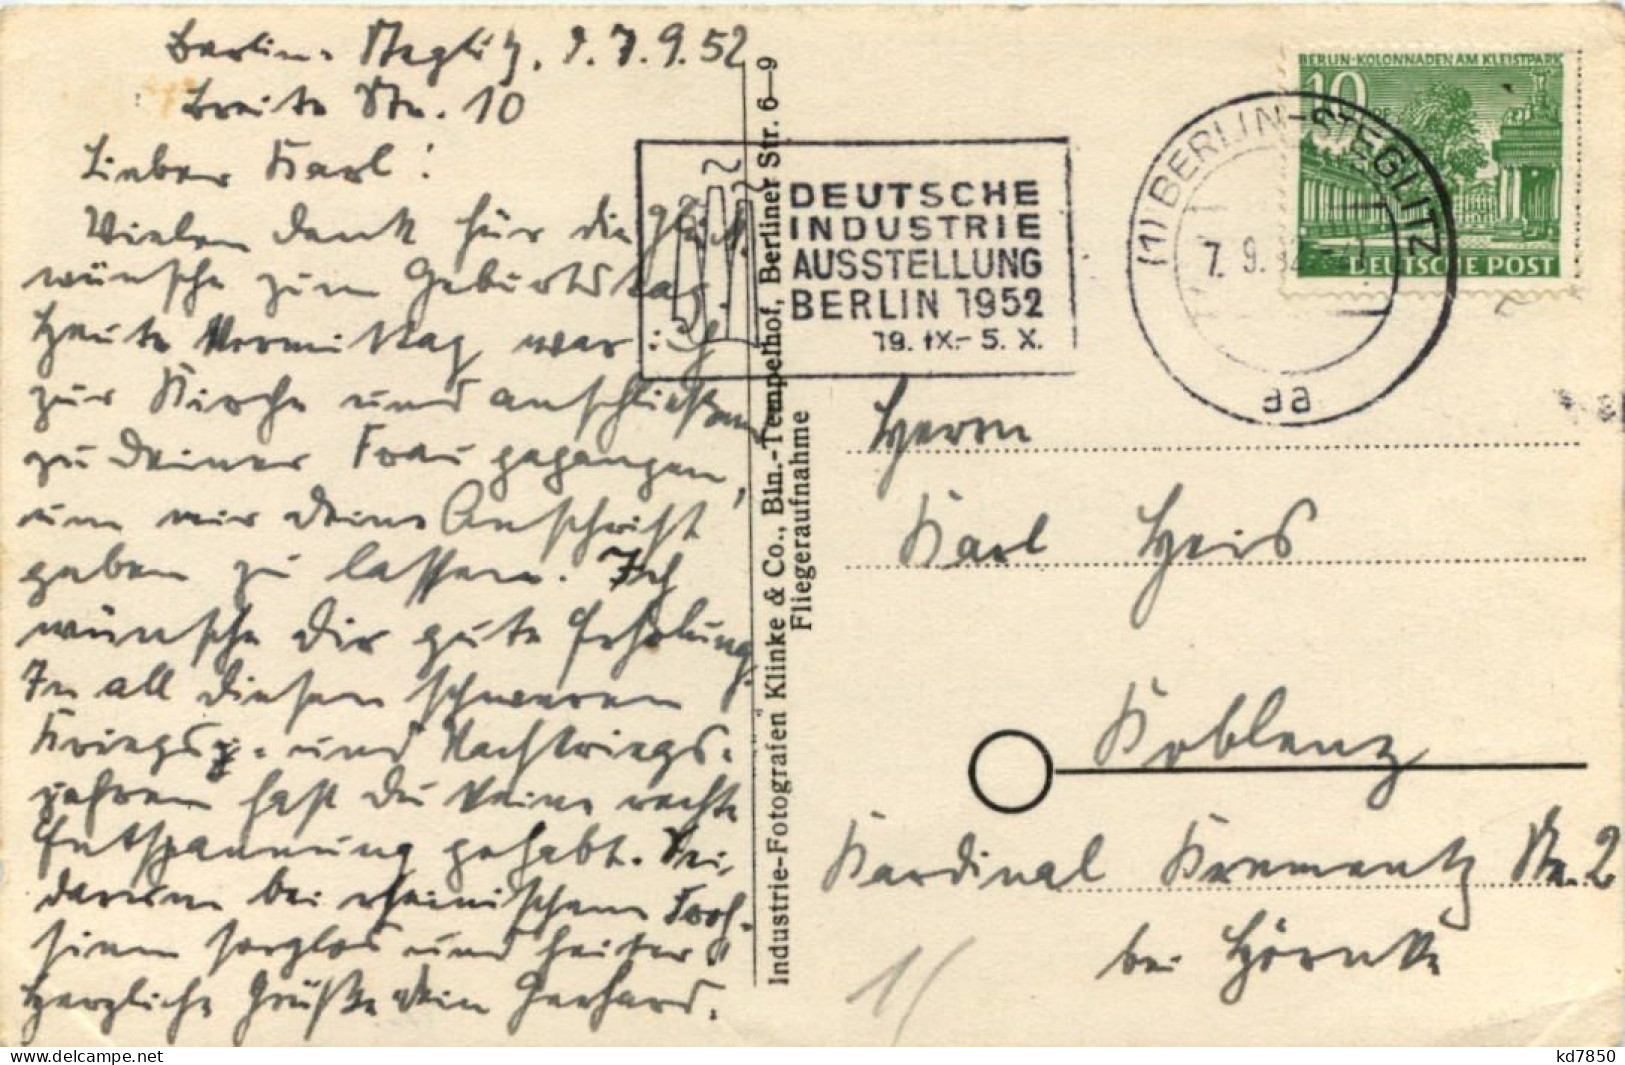 Berlin-Steglitz, d. 7.9.52
Breite Str. 10
Lieber Karl!
Vielen Dank für die Glück-
wünsche zum Geburtstag.
Heute Vormittag war ich
zur Kirche und anschließend
zu Deiner Frau gegangen,
um mir Deine Anschrift
geben zu lassen. Ich
wünsche Dir gute Erholung.
In all diesen schweren
Kriegs- und Nachkriegs-
jahren hast Du keine rechte
Entspannung gehabt. Sei
darum bei rheinischem Froh-
sinn sorglos und heiter!
Herzliche Grüße Dein Gerhard.
Industrie-Fotografen Klinke & Co., Bln.-Tempelhof, Berliner Str. 6—9
Fliegeraufnahme
DEUTSCHE
INDUSTRIE
AUSSTELLUNG
BERLIN 1952
19. IX.- 5. X.
(1) BERLIN-STEGLITZ
7. 9. 52
aa
BERLIN-KOLONNADEN AM KLEISTPARK
10
DEUTSCHE POST
Herrn
Karl Heis
Koblenz
Kardinal Krementz Str. 2
bei Hörnke
kd7850
www.delcampe.net